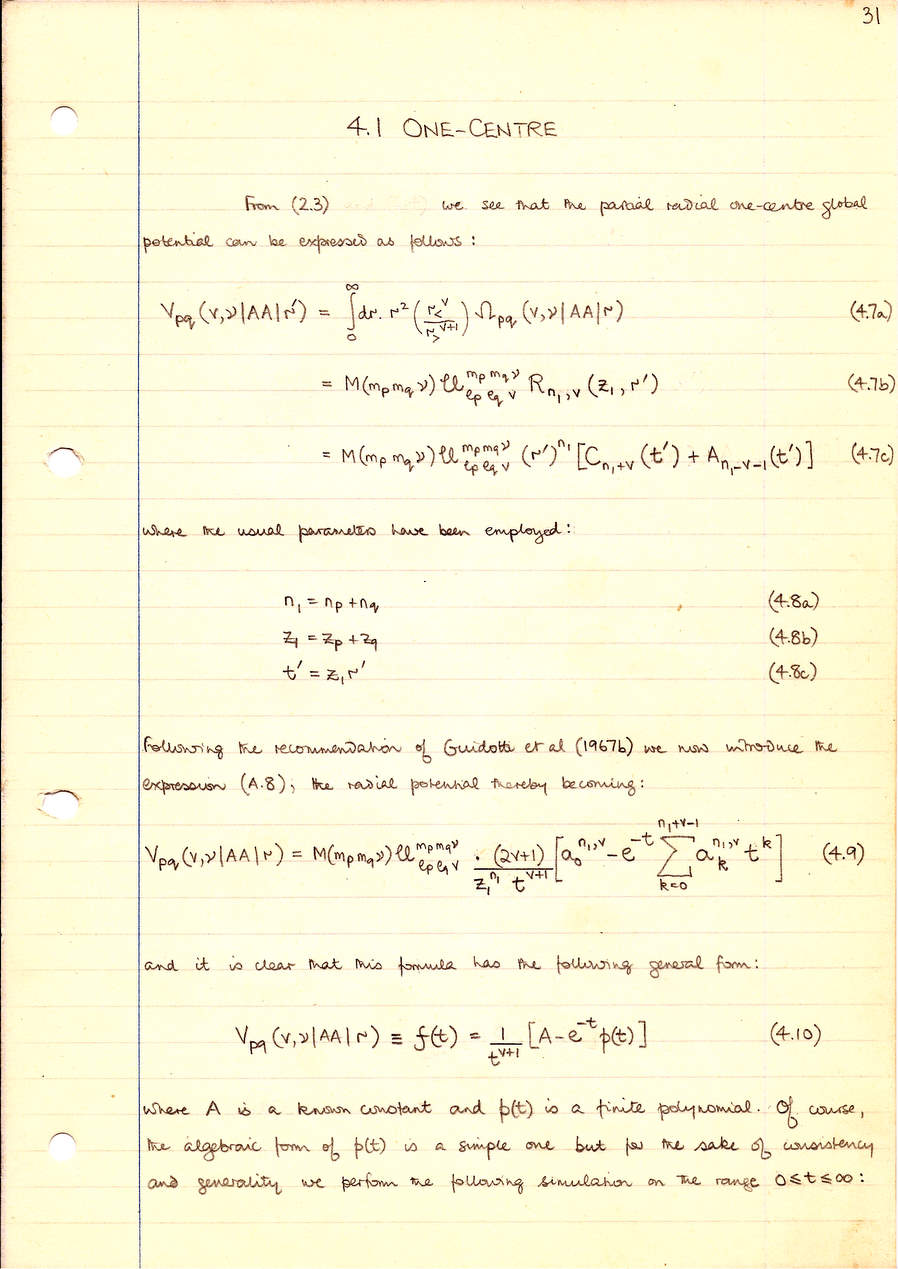 31
4.1 ONE-CENTRE
From (2.3) we see that the partial radial one-centre global
potential can be expressed as follows :
V_pq (v,ν|AA|r′) = ∫₀^∞ dr. r² (r_<^v / r_>^{v+1}) Ω_pq (v,ν|AA|r) (4.7a)
= M(m_p m_q ν) 𝒰^{m_p m_q ν}_{l_p l_q v} R_{n₁,v} (z₁, r′) (4.7b)
= M(m_p m_q ν) 𝒰^{m_p m_q ν}_{l_p l_q v} (r′)^{n₁} [C_{n₁+v} (t′) + A_{n₁-v-1} (t′)] (4.7c)
where the usual parameters have been employed :
n₁ = n_p + n_q (4.8a)
z₁ = z_p + z_q (4.8b)
t′ = z₁ r′ (4.8c)
Following the recommendation of Guidotti et al (1967b) we now introduce the
expression (A.8), the radial potential thereby becoming :
V_pq (v,ν|AA|r) = M(m_p m_q ν) 𝒰^{m_p m_q ν}_{l_p l_q v} . (2v+1) / (z₁^{n₁} t^{v+1}) [a₀^{n₁,v} - e^{-t} Σ_{k=0}^{n₁+v-1} a_k^{n₁,v} t^k] (4.9)
and it is clear that this formula has the following general form :
V_pq (v,ν|AA|r) ≡ f(t) = 1/t^{v+1} [A - e^{-t} p(t)] (4.10)
where A is a known constant and p(t) is a finite polynomial. Of course,
the algebraic form of p(t) is a simple one but for the sake of consistency
and generality we perform the following simulation on the range 0 ≤ t ≤ ∞ :